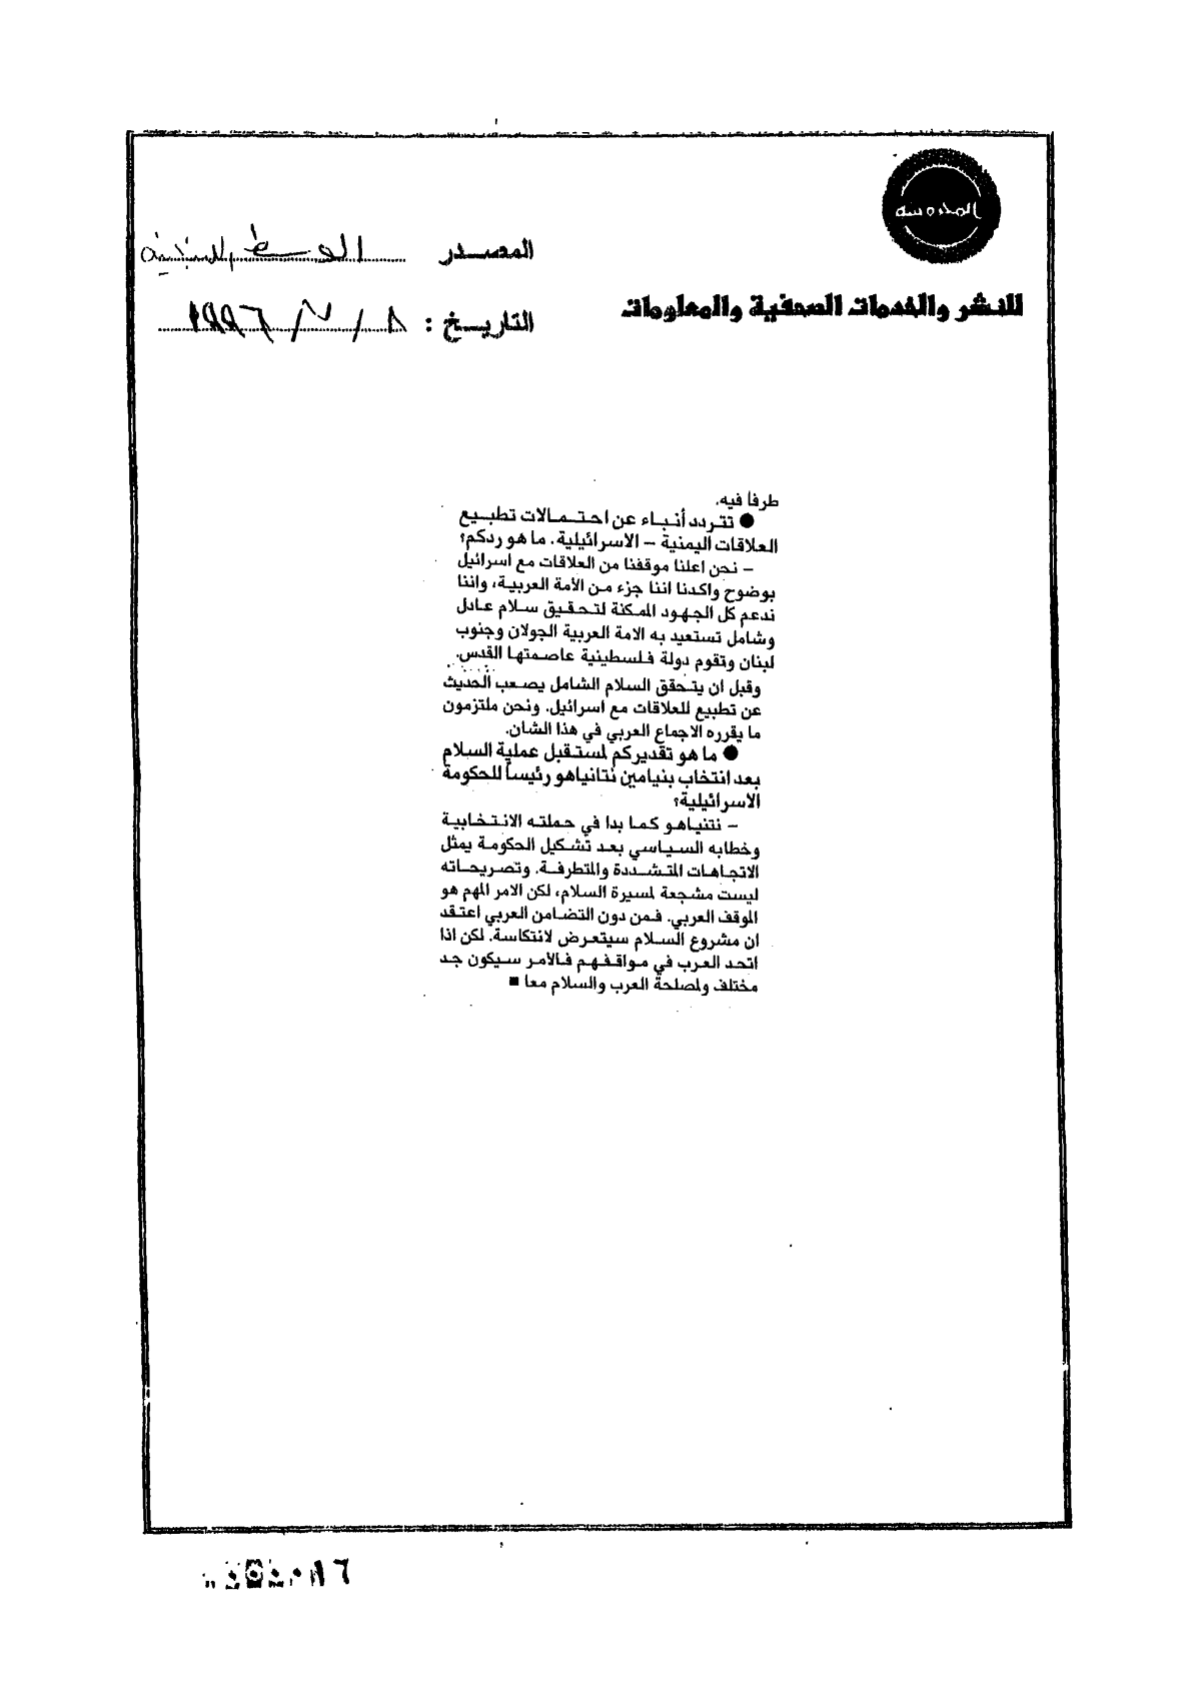 المحروسة
للنشر والخدمات الصحفية والمعلومات
المصدر الوسط اللندنية
التاريخ : ٨ / ٧ / ١٩٩٦
طرفا فيه.
● تتردد أنباء عن احتمالات تطبيع
العلاقات اليمنية – الاسرائيلية. ما هو ردكم؟
– نحن اعلنا موقفنا من العلاقات مع اسرائيل
بوضوح واكدنا اننا جزء من الأمة العربية، واننا
ندعم كل الجهود الممكنة لتحقيق سلام عادل
وشامل تستعيد به الامة العربية الجولان وجنوب
لبنان وتقوم دولة فلسطينية عاصمتها القدس.
وقبل ان يتحقق السلام الشامل يصعب الحديث
عن تطبيع للعلاقات مع اسرائيل. ونحن ملتزمون
ما يقرره الاجماع العربي في هذا الشان.
● ما هو تقديركم لمستقبل عملية السلام
بعد انتخاب بنيامين نتانياهو رئيساً للحكومة
الاسرائيلية؟
– نتنياهو كما بدا في حملته الانتخابية
وخطابه السياسي بعد تشكيل الحكومة يمثل
الاتجاهات المتشددة والمتطرفة. وتصريحاته
ليست مشجعة لمسيرة السلام، لكن الامر المهم هو
الموقف العربي. فمن دون التضامن العربي اعتقد
ان مشروع السلام سيتعرض لانتكاسة. لكن اذا
اتحد العرب في مواقفهم فالأمر سيكون جد
مختلف ولمصلحة العرب والسلام معا ■